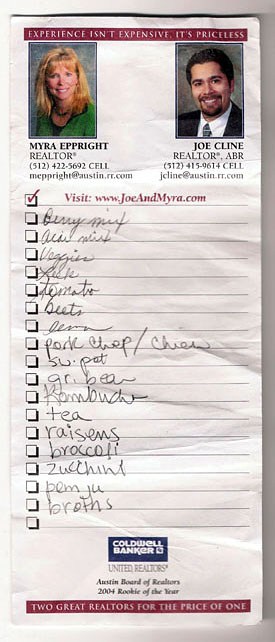 EXPERIENCE ISN'T EXPENSIVE, IT'S PRICELESS
MYRA EPPRIGHT
REALTOR®
(512) 422-5692 CELL
meppright@austin.rr.com
JOE CLINE
REALTOR®, ABR
(512) 415-9614 CELL
jcline@austin.rr.com
Visit: www.JoeAndMyra.com
Berry mix
mix
Veggies
tomato
beets
pork chop/
sw. pot
gr. bean
Kombucha
tea
raisens
broccoli
zucchini
broths
COLDWELL BANKER
UNITED REALTORS®
Austin Board of Realtors
2004 Rookie of the Year
TWO GREAT REALTORS FOR THE PRICE OF ONE